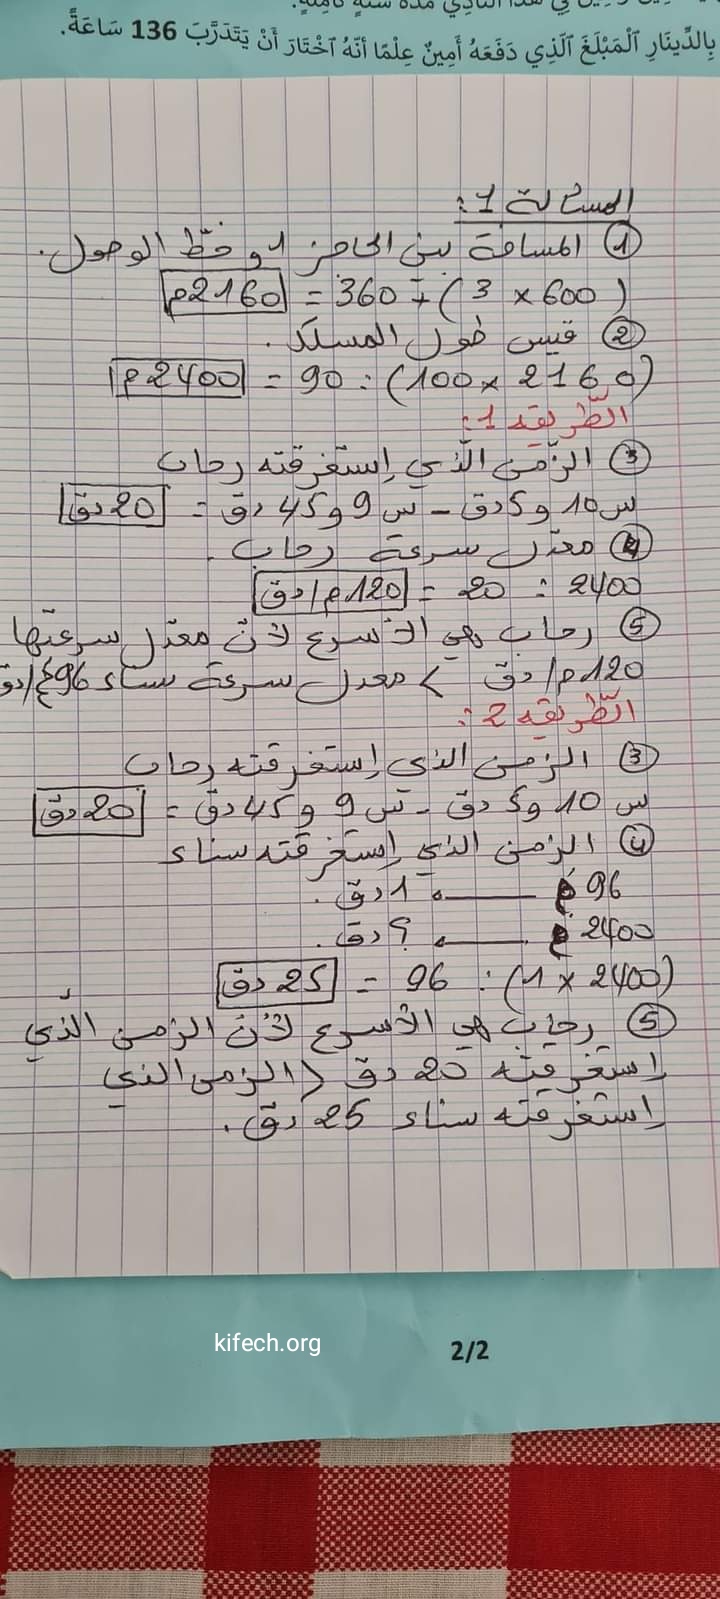 في هذا النادي مدة سنة كاملة.
بِالدِّينَارِ ٱلْمَبْلَغَ ٱلَّذِي دَفَعَهُ أَمِينٌ عِلْمًا أَنَّهُ ٱخْتَارَ أَنْ يَتَدَرَّبَ 136 سَاعَةً.
المسألة 1:
① المسافة بين الحاجز 4 وخطّ الوصول.
(600 × 3) + 360 = 2160م
② قيس طول المسلك.
(2160 × 100) : 90 = 2400م
الطّريقة 1:
③ الزّمن الّذي إستغرقته رحاب
س10 و5دق - س9 و45دق = 20دق
④ معدّل سرعة رحاب.
2400 : 20 = 120م/دق
⑤ رحاب هي الأسرع لأنّ معدّل سرعتها
120م/دق > معدل سرعة سناء 96م/دق
الطّريقة 2:
③ الزمن الذي إستغرقته رحاب
س10 و5دق - س9 و45دق = 20دق
④ الزمن الذي إستغرقته سناء
96م ← 1دق.
2400م ← ؟دق.
(2400 × 1) : 96 = 25دق
⑤ رحاب هي الأسرع لأنّ الزمن الّذي
إستغرقته 20دق < الزمن الذي
إستغرقته سناء 25دق.
kifech.org
2/2